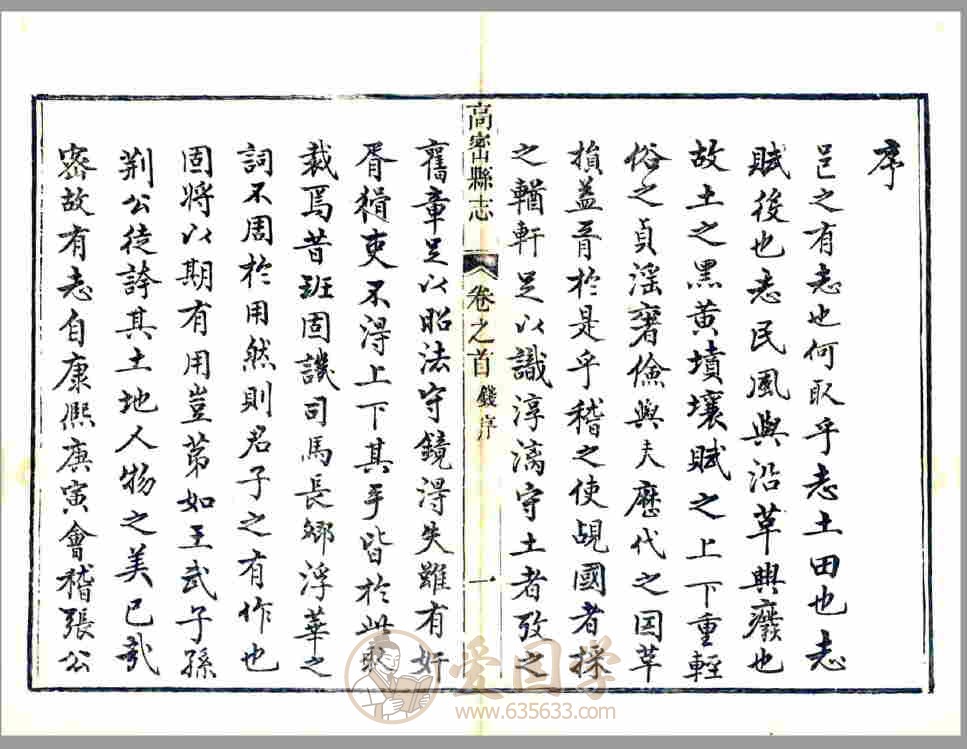 序
邑之有志也何取乎志土田也志
賦後也志民風與沿革興廢也
故土之黑黃墳壤賦之上下重輕
俗之貞淫奢儉與夫歷代之因革
損益胥於是乎稽之使覘國者採
之輶軒足以識淳漓守土者攷之
高密縣志
卷之首
錢序
一
舊章足以昭法守鏡得失雖有奸
胥猾吏不得上下其手皆於此取
裁焉昔班固譏司馬長卿浮華之
詞不周於用然則君子之有作也
固將以期有用豈第如王武子孫
荆公徒誇其土地人物之美已哉
密故有志自康熙庚寅會稽張公
爱国学
www.635633.com